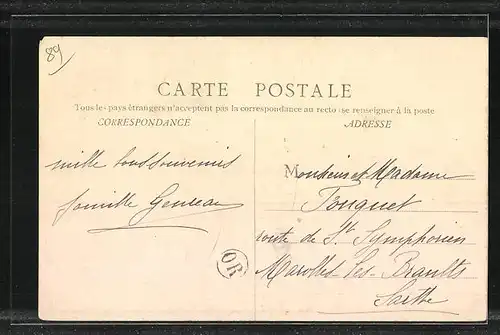 89
CARTE POSTALE
Tous les pays étrangers n'acceptent pas la correspondance au recto (se renseigner à la poste
CORRESPONDANCE
ADRESSE
mille bons souvenirs
famille
Monsieur et Madame
Fouquet
route de St Symphorien
Marolles les Braults
Sarthe
OR